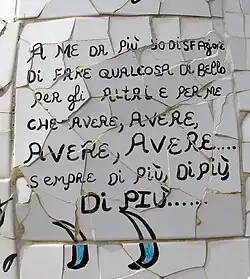 A ME DA PIÙ SODISFAZIONE
DI FARE QUALCOSA DI BELLO
PER gli ALTRI E PER ME
CHE AVERE, AVERE,
AVERE, AVERE....
SEMPRE DI PIÙ, DI PIÙ,
DI PIÙ......